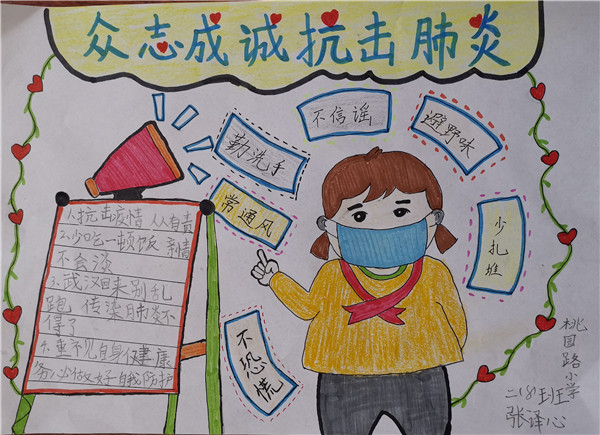 众志成诚抗击肺炎
不信谣
避野味
勤洗手
常通风
少扎堆
不恐慌
1.抗击疫情 人人有责
2.少吃一顿饭 亲情
不会淡
3.武汉回来别乱
跑 传染肺炎不
得了
4.重视自身健康
务必做好自我防护
桃园路小学
二(8)班
张译心